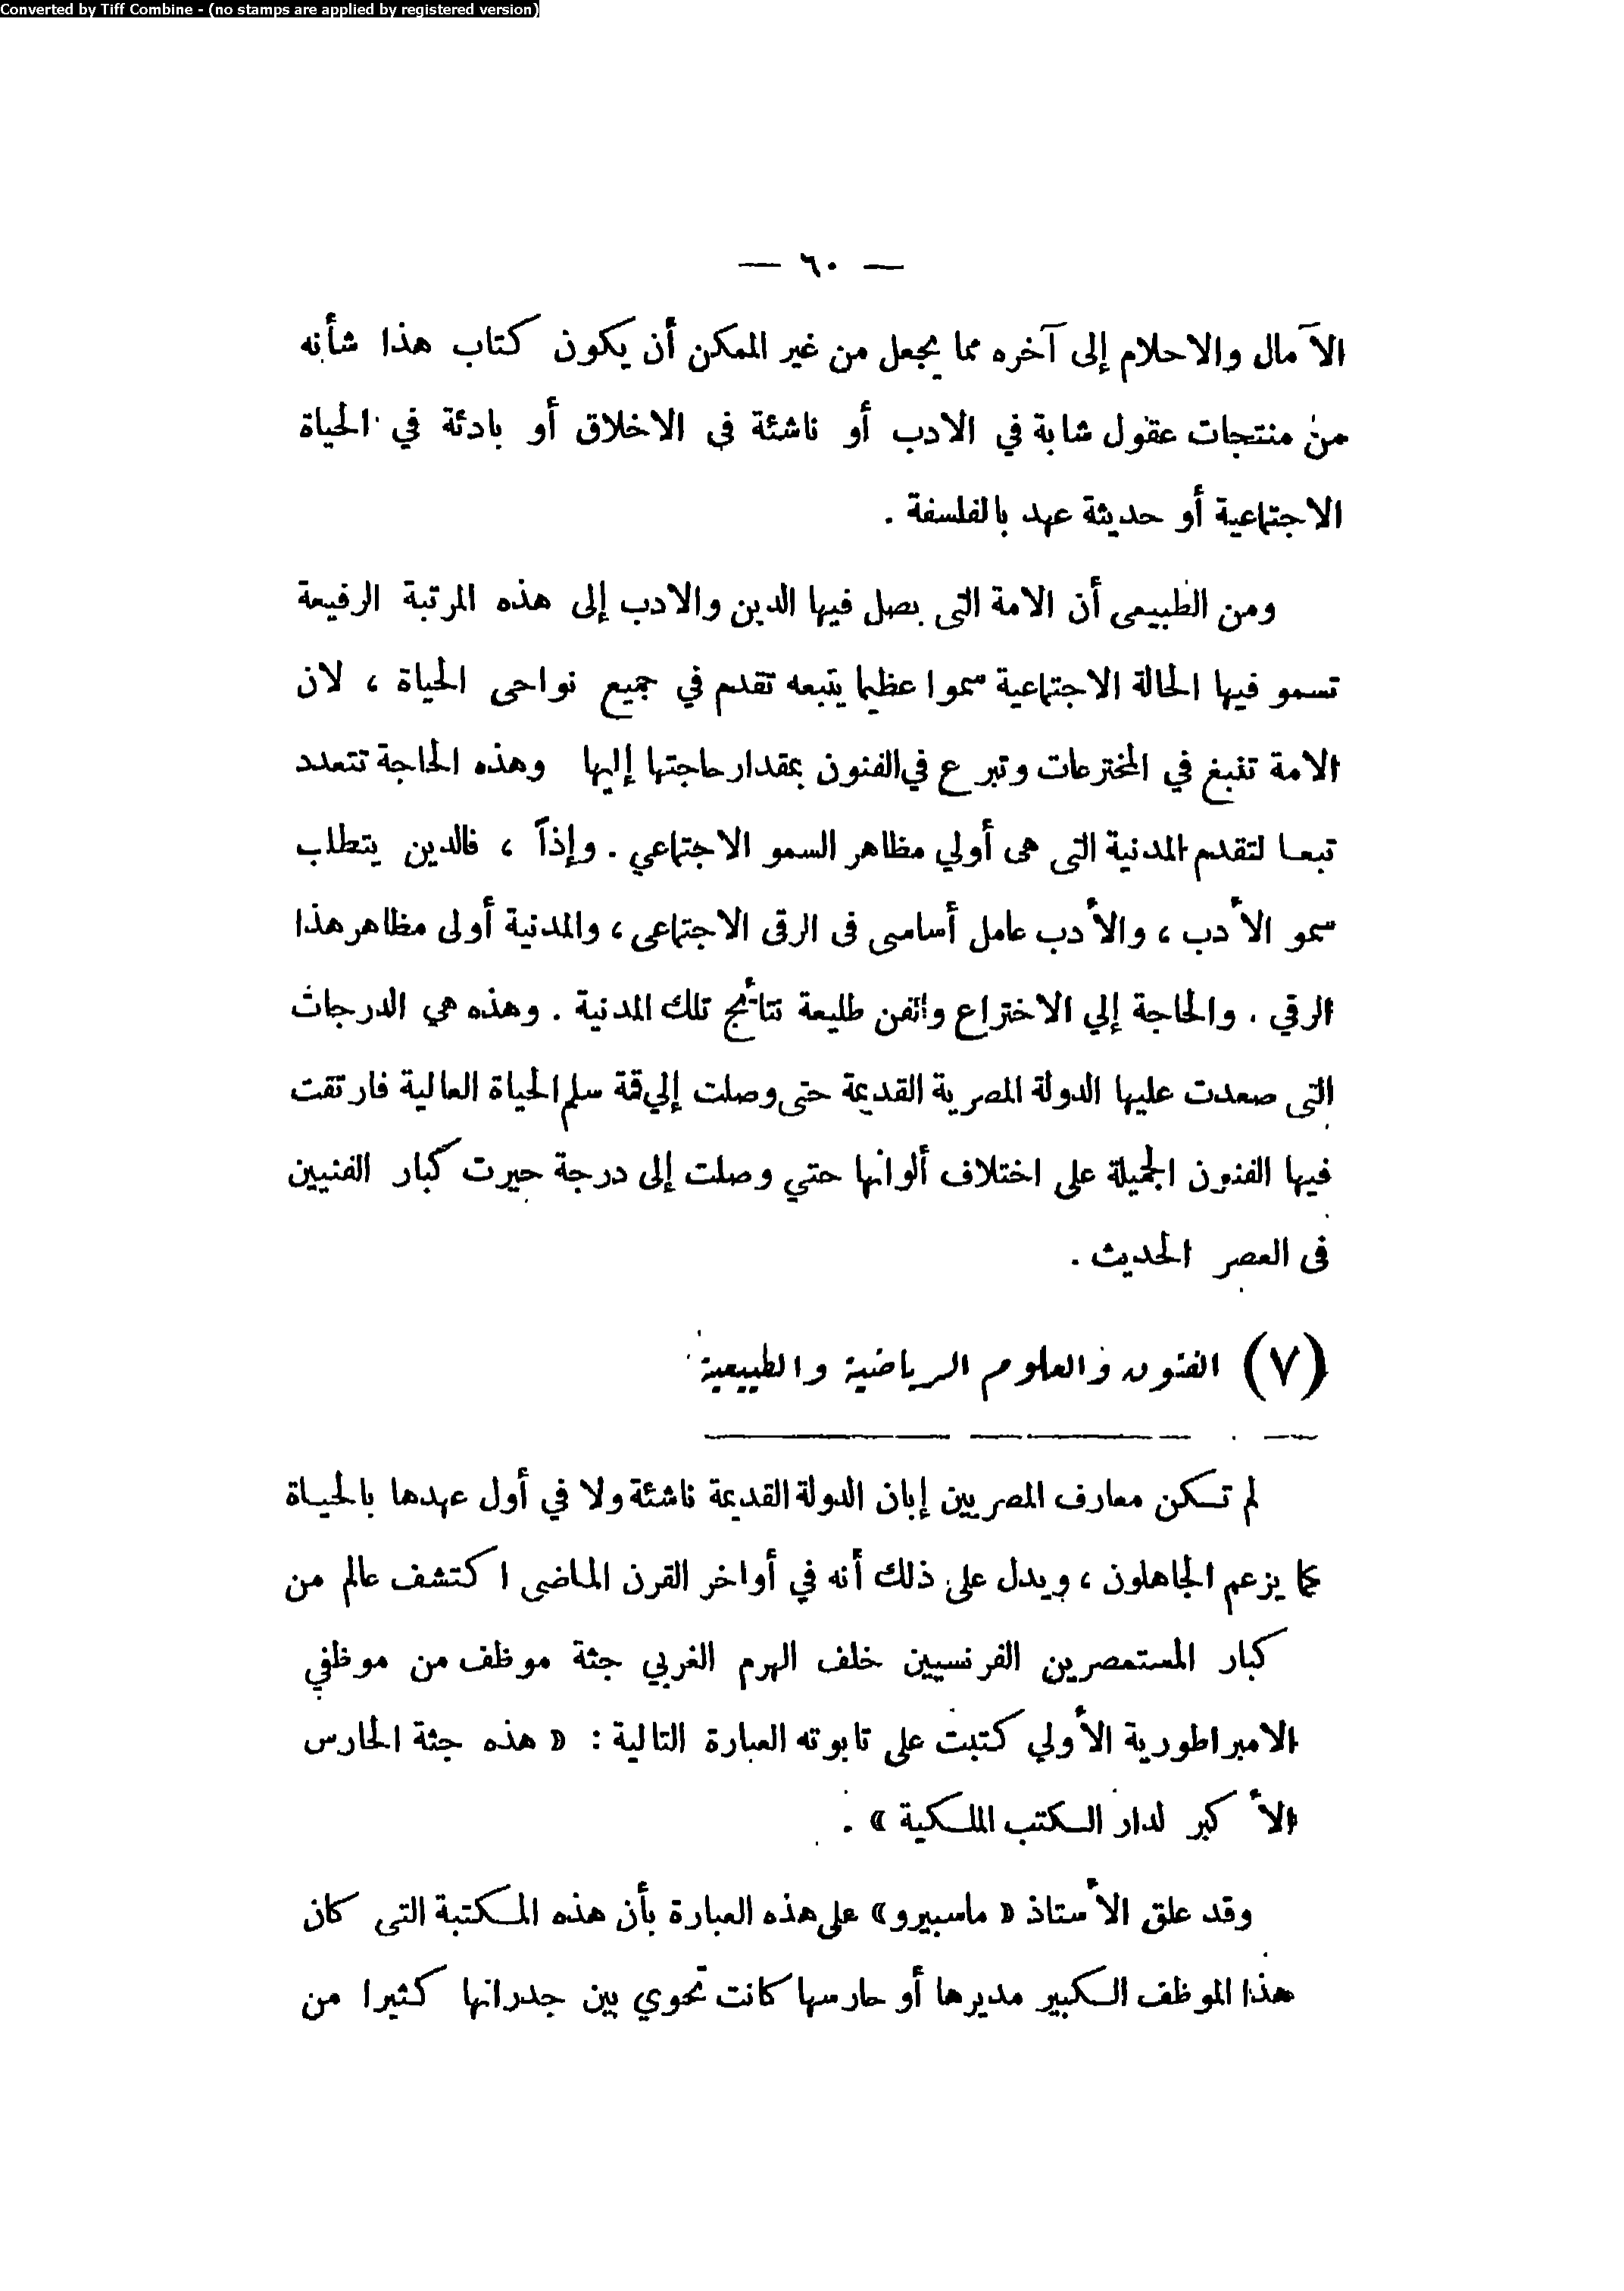 Converted by Tiff Combine - (no stamps are applied by registered version)
— ٦٠ —
الآمال والاحلام إلى آخره مما يجعل من غير الممكن أن يكون كتاب هذا شأنه
من منتجات عقول شابة في الادب أو ناشئة فى الاخلاق أو بادئة في الحياة
الاجتماعية أو حديثة عهد بالفلسفة .
ومن الطبيعى أن الامة التى يصل فيها الدين والادب إلى هذه المرتبة الرفيعة
تسمو فيها الحالة الاجتماعية سموا عظيما يتبعه تقدم في جميع نواحى الحياة ، لان
الامة تنبغ في المخترعات وتبرع في الفنون بمقدار حاجتها إليها وهذه الحاجة تتعدد
تبعا لتقدم المدنية التى هى أولي مظاهر السمو الاجتماعي . وإذاً ، فالدين يتطلب
سمو الأدب ، والأدب عامل أساسى فى الرقى الاجتماعى ، والمدنية أولى مظاهر هذا
الرقي . والحاجة إلي الاختراع والفن طليعة نتائج تلك المدنية . وهذه هي الدرجات
التى صعدت عليها الدولة المصرية القديمة حتى وصلت إلي قمة سلم الحياة العالية فارتقت
فيها الفنون الجميلة على اختلاف ألوانها حتي وصلت إلى درجة حيرت كبار الفنيين
فى العصر الحديث .
(٧) الفنون والعلوم الرياضية والطبيعية
لم تكن معارف المصريين إبان الدولة القديمة ناشئة ولا في أول عهدها بالحياة
كما يزعم الجاهلون ، ويدل على ذلك أنه في أواخر القرن الماضى اكتشف عالم من
كبار المستمصرين الفرنسيين خلف الهرم الغربي جثة موظف من موظفي
الامبراطورية الأولي كتبت على تابوته العبارة التالية : « هذه جثة الحارس
الأكبر لدار الكتب الملكية » .
وقد علق الأستاذ « ماسبيرو » على هذه العبارة بأن هذه المكتبة التى كان
هذا الموظف الكبير مديرها أو حارسها كانت تحوي بين جدرانها كثيرا من